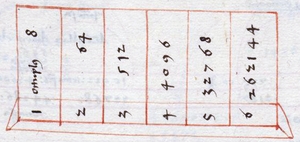 1 omnply 8
2 64
3 512
4 4096
5 32768
6 262144